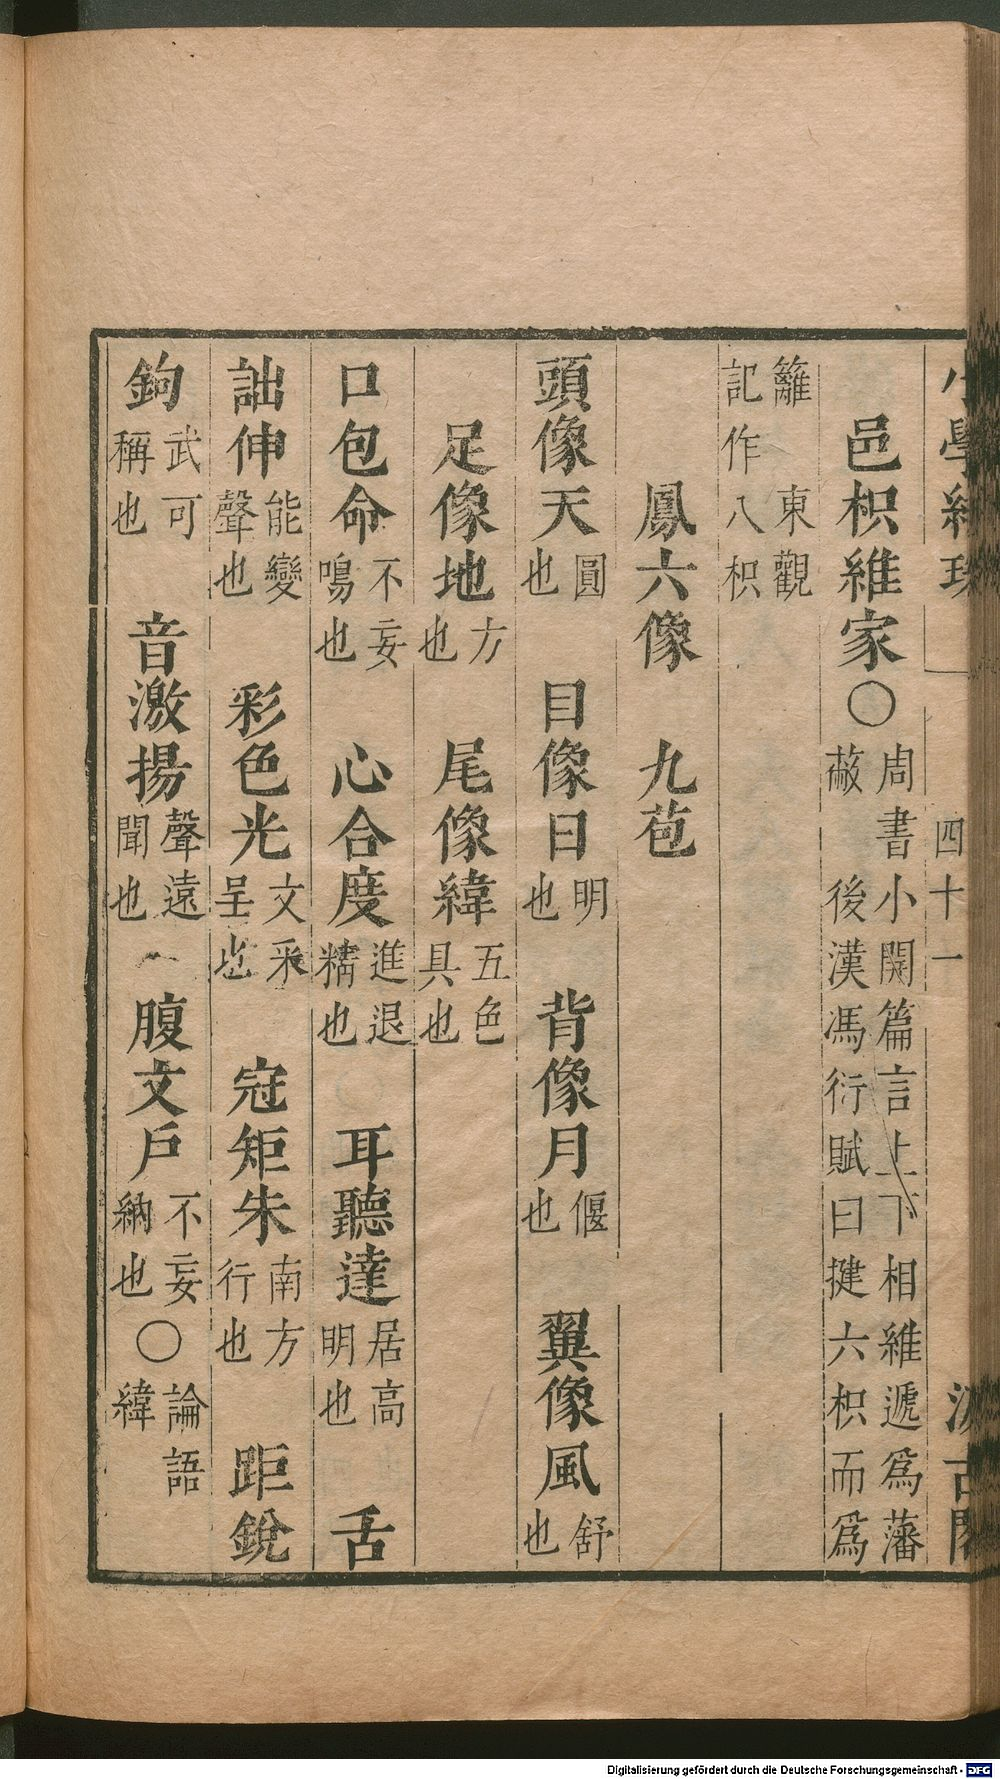 小學紺珠 四十一 汲古閣
邑枳維家〇周書小開篇言上下相維遞爲藩蔽 後漢馮衍賦曰揵六枳而爲
籬 東觀記作八枳
鳳六像 九苞
頭像天圓也 目像日明也 背像月偃也 翼像風舒也
足像地方也 尾像緯五色具也
口包命不妄鳴也 心合度進退精也 耳聽達居高明也 舌
詘伸能變聲也 彩色光文采呈也 冠矩朱南方行也 距銳
鉤武可稱也 音激揚聲遠聞也 腹文戶不妄納也〇論語緯
Digitalisierung gefördert durch die Deutsche Forschungsgemeinschaft - DFG